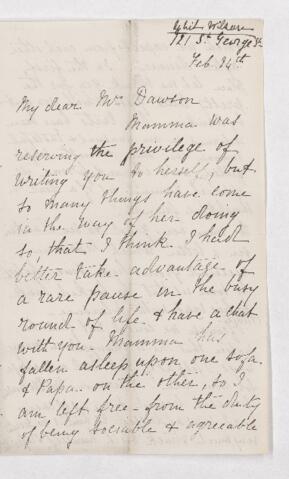 121 St George St
Feb 24th
My dear Mr Dawson
Mamma was
reserving the privilege of
writing you to herself, but
so many things have come
in the way of her doing
so, that I think I had
better take advantage of
a rare pause in the busy
round of life & have a chat
with you. Mamma has
fallen asleep upon one sofa
& Papa on the other, so I
am left free from the duty
of being sociable & agreeable